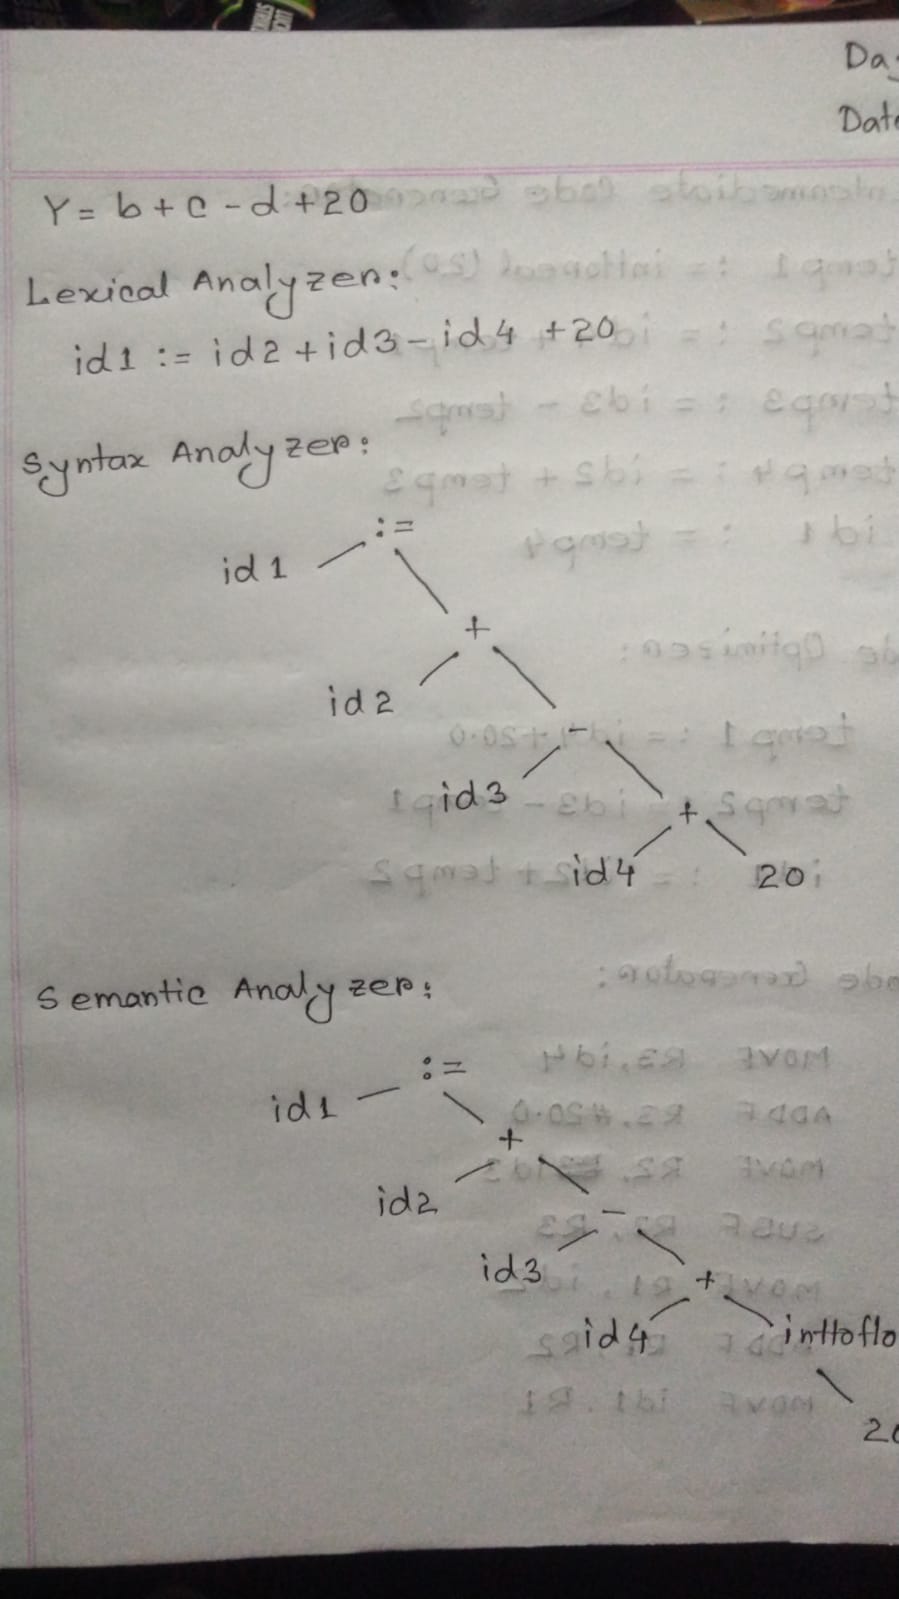 Da
Date
Y = b + c - d + 20
Lexical Analyzer:
id1 := id2 + id3 - id4 + 20
Syntax Analyzer:
:=
id1
+
id2
-
id3
+
id4 20
Semantic Analyzer:
:=
id1
+
id2
-
id3
+
id4 inttoflo
20